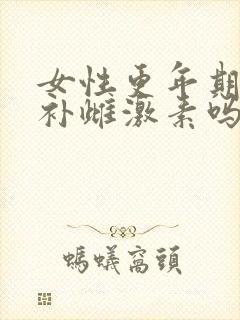 女性更年期
补雌激素吗
螞蟻窩頭